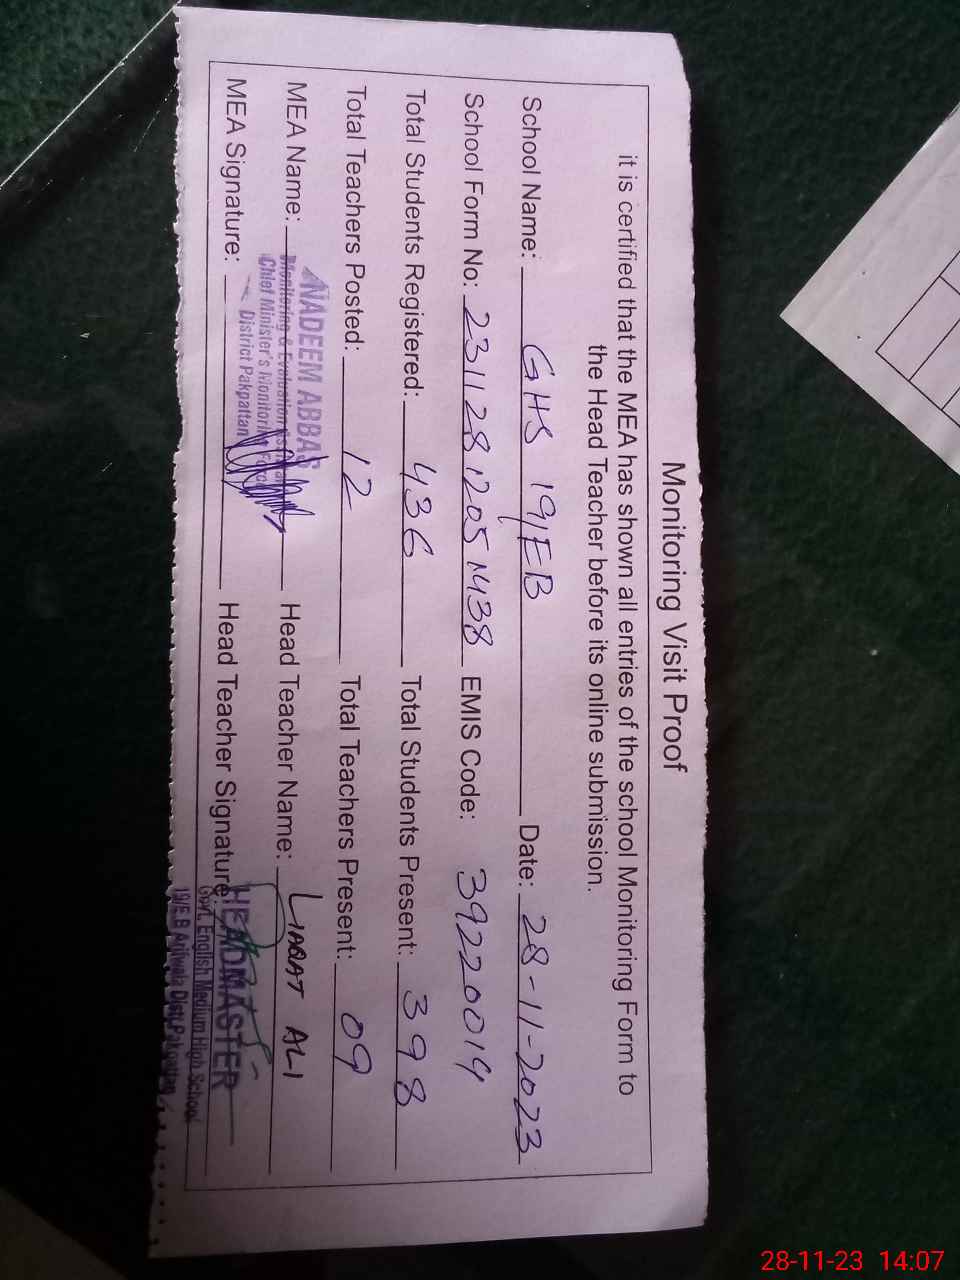 Monitoring Visit Proof
it is certified that the MEA has shown all entries of the school Monitoring Form to
the Head Teacher before its online submission.
School Name: GHS 19/EB Date: 28-11-2023
School Form No: 231128 1205 1438 EMIS Code: 39220014
Total Students Registered: 436 Total Students Present: 398
Total Teachers Posted: 12 Total Teachers Present: 09
MEA Name: NADEEM ABBAS Head Teacher Name: LIAQAT ALI
Monitoring & Evaluation
Chief Minister's Monitoring Force
District Pakpattan
MEA Signature: Head Teacher Signature:
HEADMASTER
Govt. English Medium High School
19/E.B Arifwala Distt. Pakpattan
28-11-23 14:07